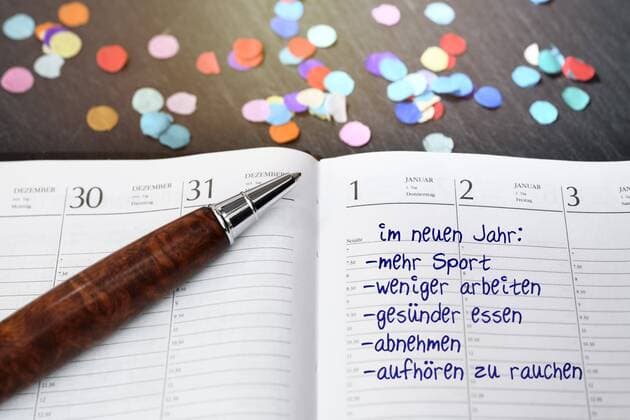 DEZEMBER
Montag
30
DEZEMBER
Dienstag
31
DEZEMBER
1
JANUAR
1. Tag
Donnerstag
2
JANUAR
2. Tag
Freitag
3
JANUAR
im neuen Jahr:
-mehr Sport
-weniger arbeiten
-gesünder essen
-abnehmen
-aufhören zu rauchen